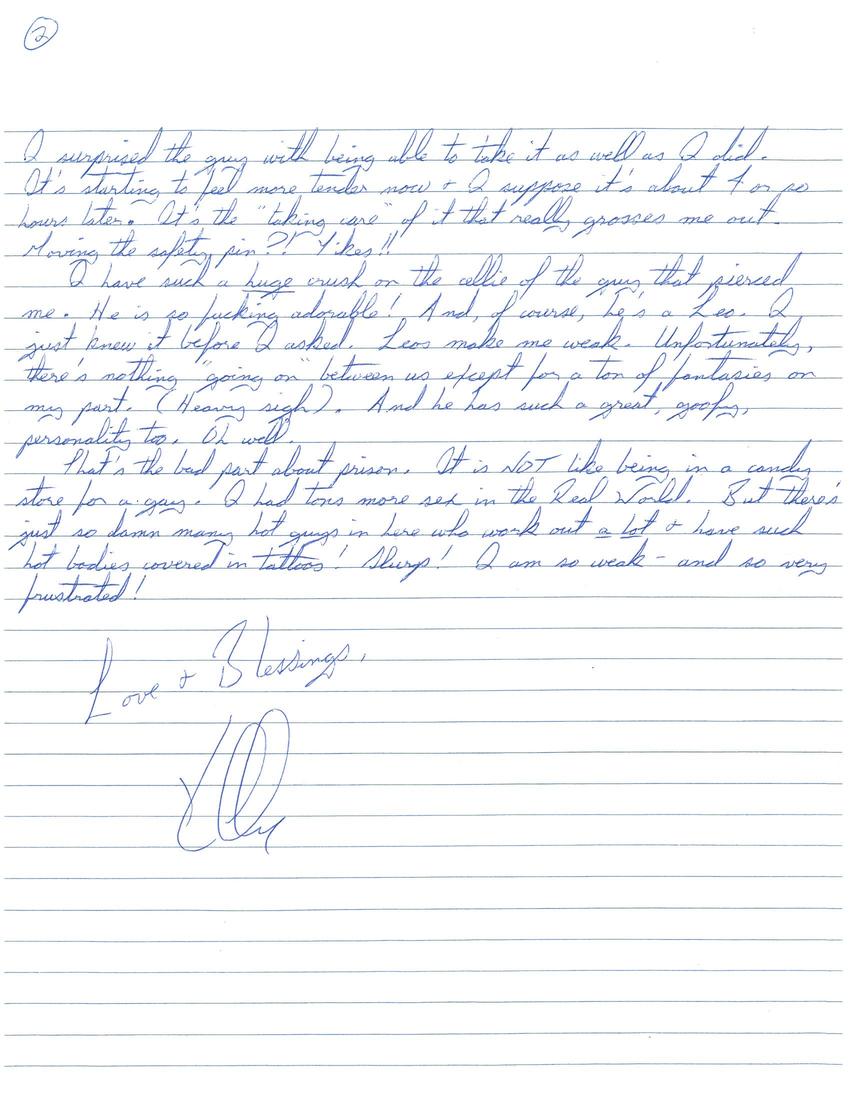 2
I surprised the guy with being able to take it as well as I did.
It's starting to feel more tender now + I suppose it's about 4 or so
hours later. It's the "taking care" of it that really grosses me out.
Moving the safety pin?! Yikes!!
I have such a huge crush on the cellie of the guy that pierced
me. He is so fucking adorable! And, of course, he's a Leo. I
just knew it before I asked. Leos make me weak. Unfortunately,
there's nothing "going on" between us except for a ton of fantasies on
my part. (Heavy sigh). And he has such a great, goofy,
personality too. Oh well.
That's the bad part about prison. It is NOT like being in a candy
store for a gay. I had tons more sex in the Real World. But there's
just so damn many hot guys in here who work out a lot + have such
hot bodies covered in tattoos! Slurp! I am so weak - and so very
frustrated!
Love + Blessings,